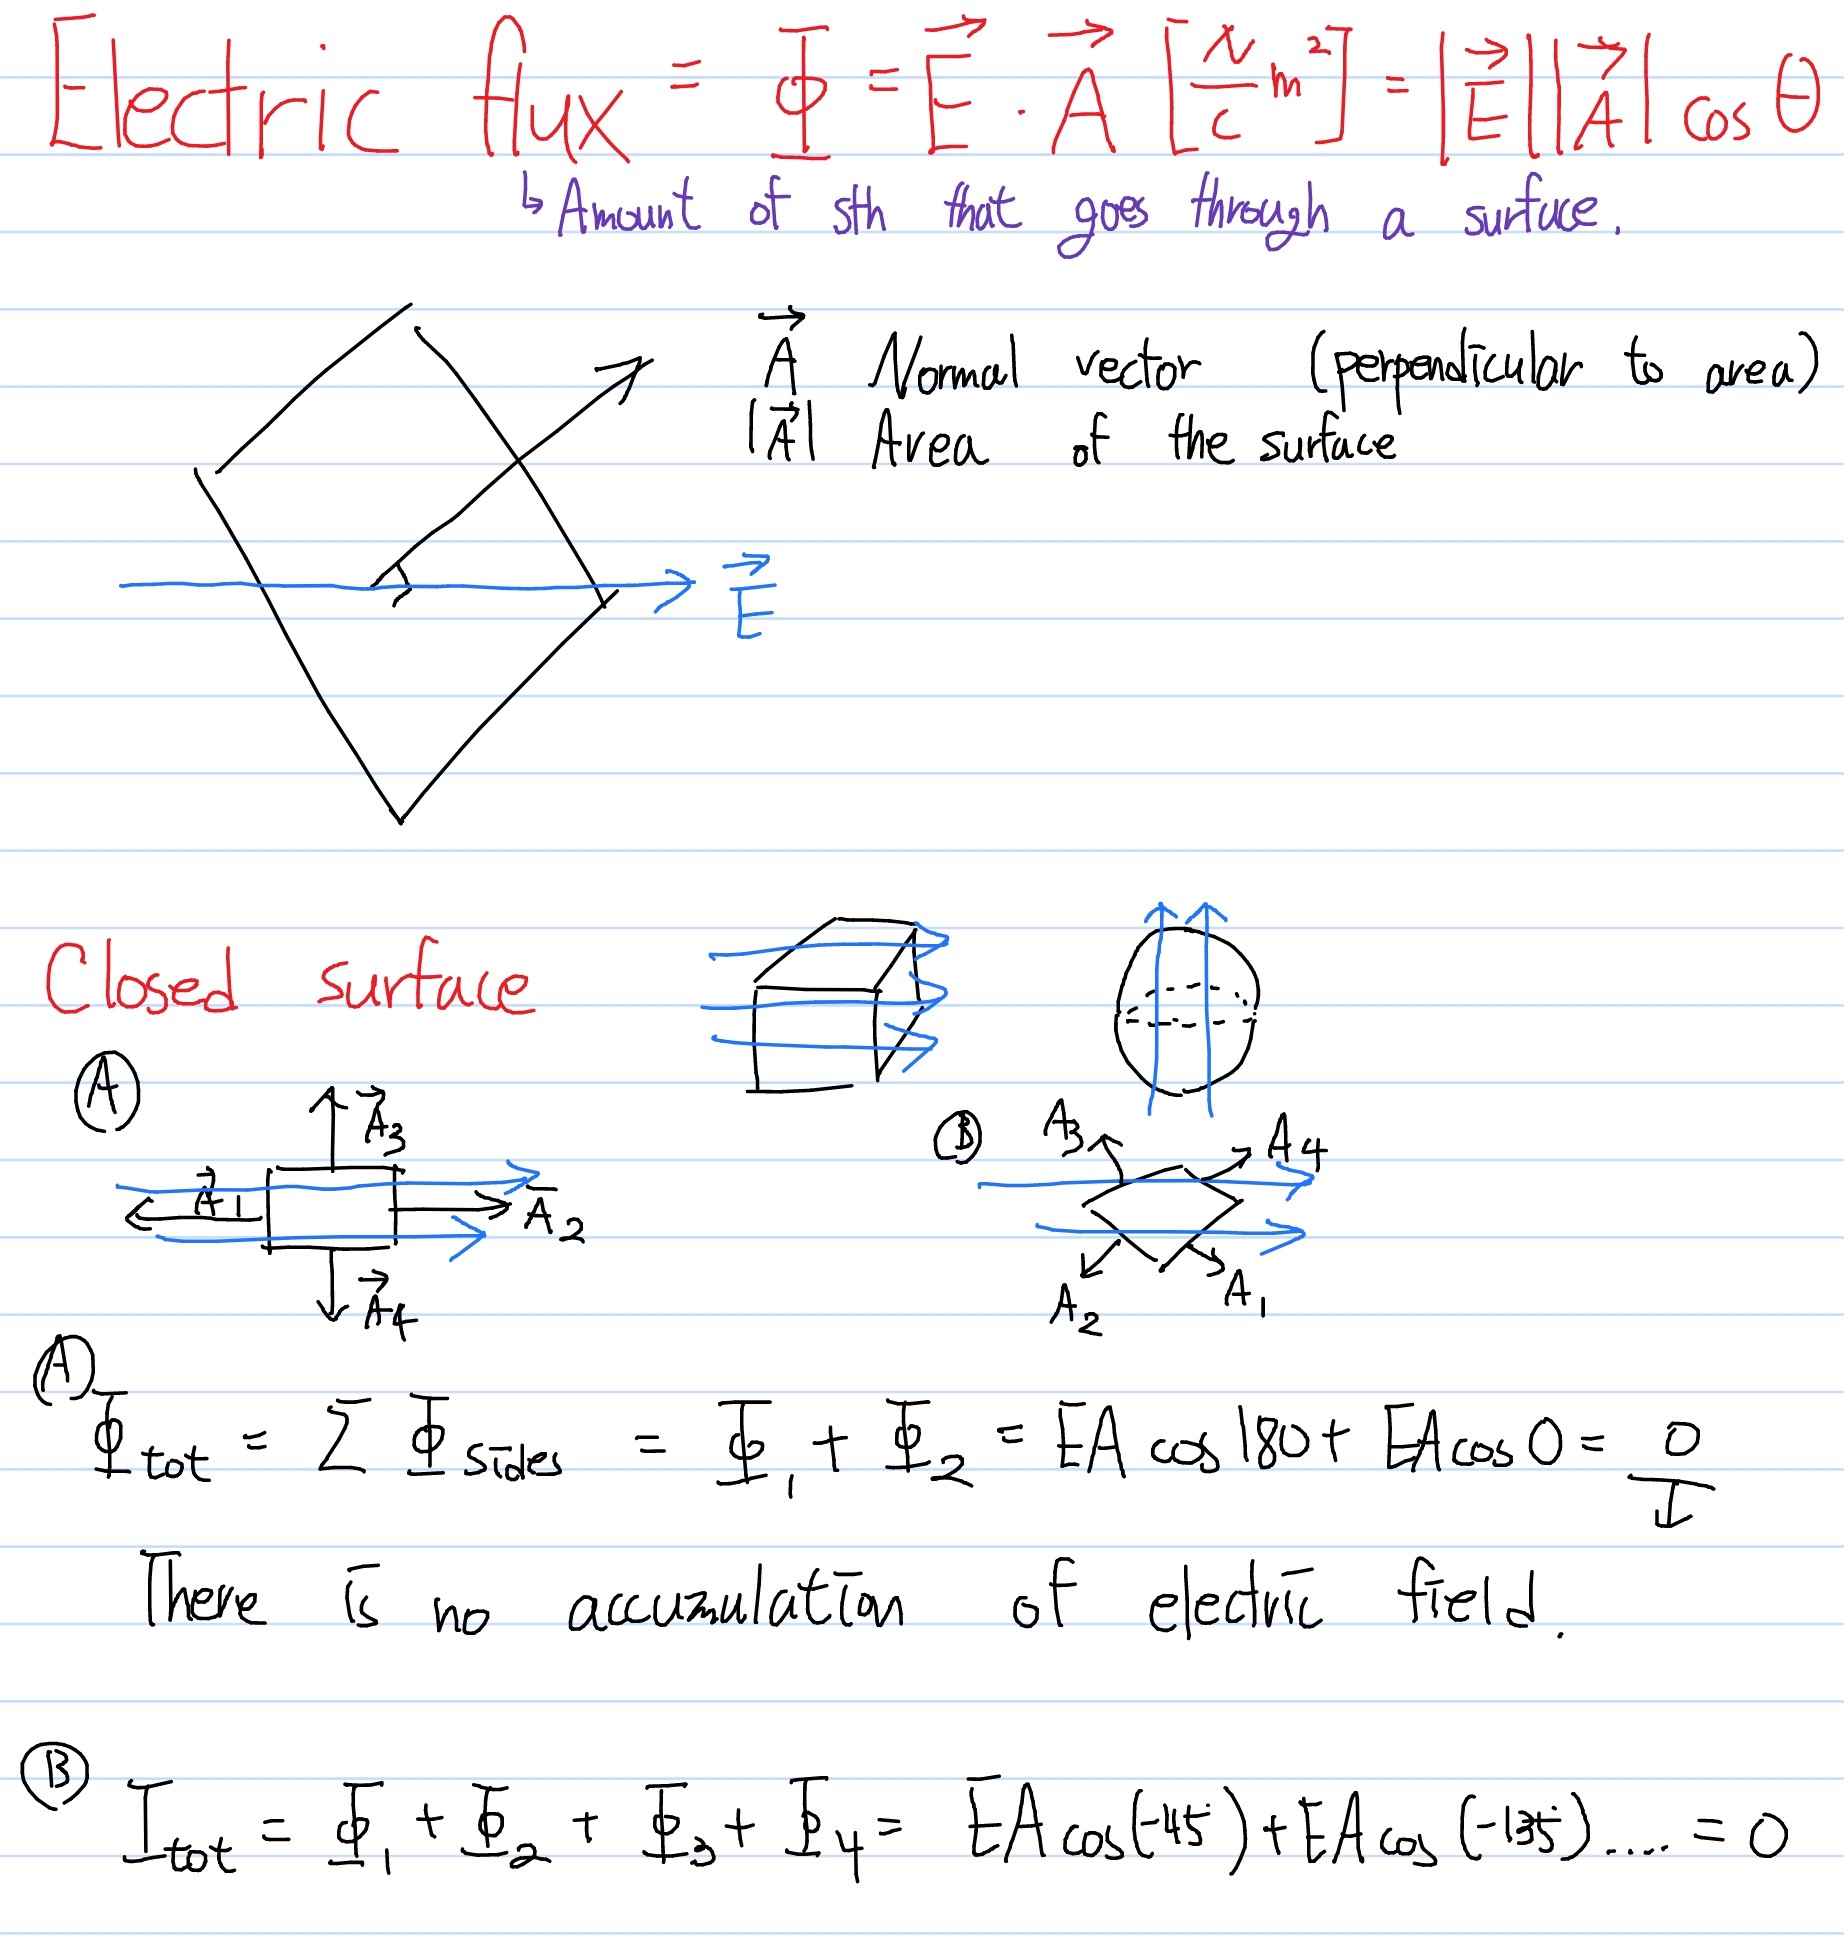 Electric flux = Φ = E⃗ · A⃗ [N/c m²] = |E⃗||A⃗| cos θ
↳ Amount of sth that goes through a surface.
A⃗ Normal vector (perpendicular to area)
|A⃗| Area of the surface
E⃗
Closed surface
Ⓐ
A⃗3
A⃗1
A̅2
A⃗4
Ⓑ
A3
A4
A2
A1
Ⓐ
Φtot = Σ Φsides = Φ1 + Φ2 = EA cos 180 + EA cos 0 = 0
There is no accumulation of electric field.
Ⓑ
Itot = Φ1 + Φ2 + Φ3 + Φ4 = EA cos(-45) + EA cos (-135) .... = 0